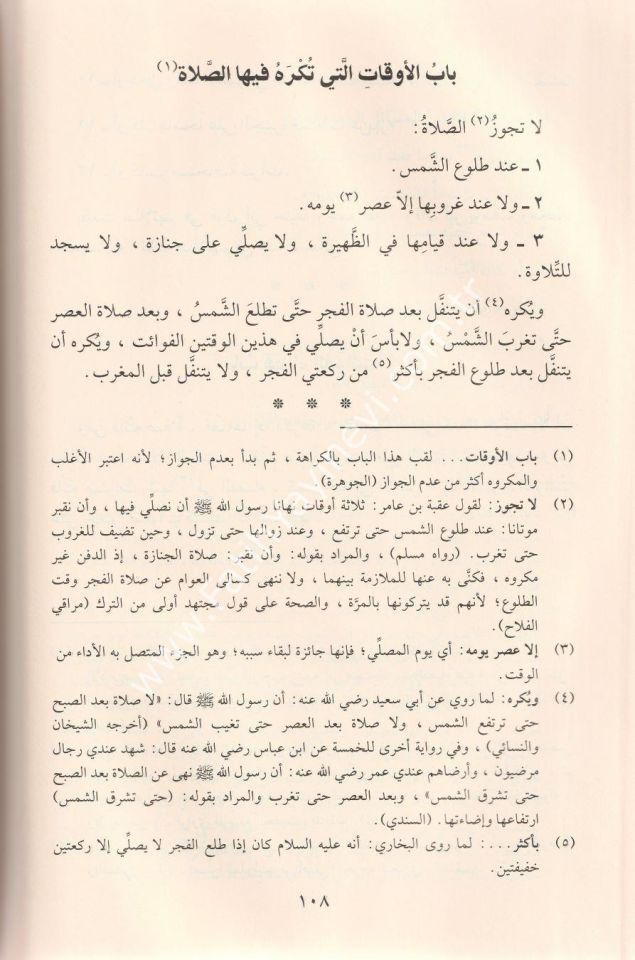 بابُ الأوقاتِ الَّتي تُكْرَهُ فيها الصَّلاة(١)
لا تجوزُ(٢) الصَّلاةُ:
١ ـ عند طلوع الشَّمس.
٢ ـ ولا عند غروبِها إلاّ عصر(٣) يومه.
٣ ـ ولا عند قيامِها في الظَّهيرة ، ولا يصلِّي على جنازة ، ولا يسجد
للتِّلاوة.
ويُكره(٤) أن يتنفَّل بعد صلاة الفجرِ حتَّى تطلعَ الشَّمسُ ، وبعد صلاة العصر
حتَّى تغربَ الشَّمْسُ ، ولابأسَ أنْ يصلِّي في هذين الوقتين الفوائت ، ويُكره أن
يتنفَّل بعد طلوع الفجر بأكثر(٥) من ركعتي الفجر ، ولا يتنفَّل قبل المغرب.
* * *
(١) باب الأوقات... لقب هذا الباب بالكراهة ، ثم بدأ بعدم الجواز؛ لأنه اعتبر الأغلب
والمكروه أكثر من عدم الجواز (الجوهرة).
(٢) لا تجوز: لقول عقبة بن عامر: ثلاثة أوقات نهانا رسول الله ﷺ أن نصلِّي فيها ، وأن نقبر
موتانا: عند طلوع الشمس حتى ترتفع ، وعند زوالها حتى تزول ، وحين تضيف للغروب
حتى تغرب. (رواه مسلم) ، والمراد بقوله: وأن نقبر: صلاة الجنازة ، إذ الدفن غير
مكروه ، فكنَّى به عنها للملازمة بينهما ، ولا ننهى كسالى العوام عن صلاة الفجر وقت
الطلوع؛ لأنهم قد يتركونها بالمرَّة ، والصحة على قول مجتهد أولى من الترك (مراقي
الفلاح).
(٣) إلا عصر يومه: أي يوم المصلِّي؛ فإنها جائزة لبقاء سببه؛ وهو الجزء المتصل به الأداء من
الوقت.
(٤) ويُكره: لما روي عن أبي سعيد رضي الله عنه: أن رسول الله ﷺ قال: «لا صلاة بعد الصبح
حتى ترتفع الشمس ، ولا صلاة بعد العصر حتى تغيب الشمس» (أخرجه الشيخان
والنسائي) ، وفي رواية أخرى للخمسة عن ابن عباس رضي الله عنه قال: شهد عندي رجال
مرضيون ، وأرضاهم عندي عمر رضي الله عنه: أن رسول الله ﷺ نهى عن الصلاة بعد الصبح
حتى تشرق الشمس» ، وبعد العصر حتى تغرب والمراد بقوله: (حتى تشرق الشمس)
ارتفاعها وإضاءتها. (السندي).
(٥) بأكثر...: لما روى البخاري: أنه عليه السلام كان إذا طلع الفجر لا يصلِّي إلا ركعتين
خفيفتين.
١٠٨